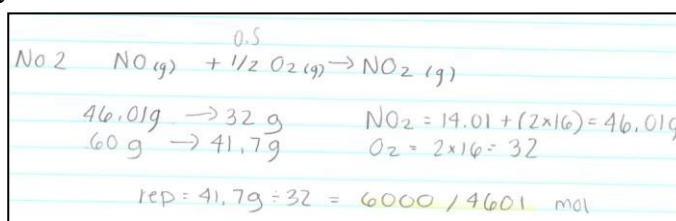 0.5
No 2 NO (g) + 1/2 O2 (g) → NO2 (g)
46.01g → 32 g NO2 = 14.01 + (2×16) = 46.01g
60 g → 41,7g O2 = 2×16 = 32
rep = 41.7g ÷ 32 = 6000 / 4601 mol